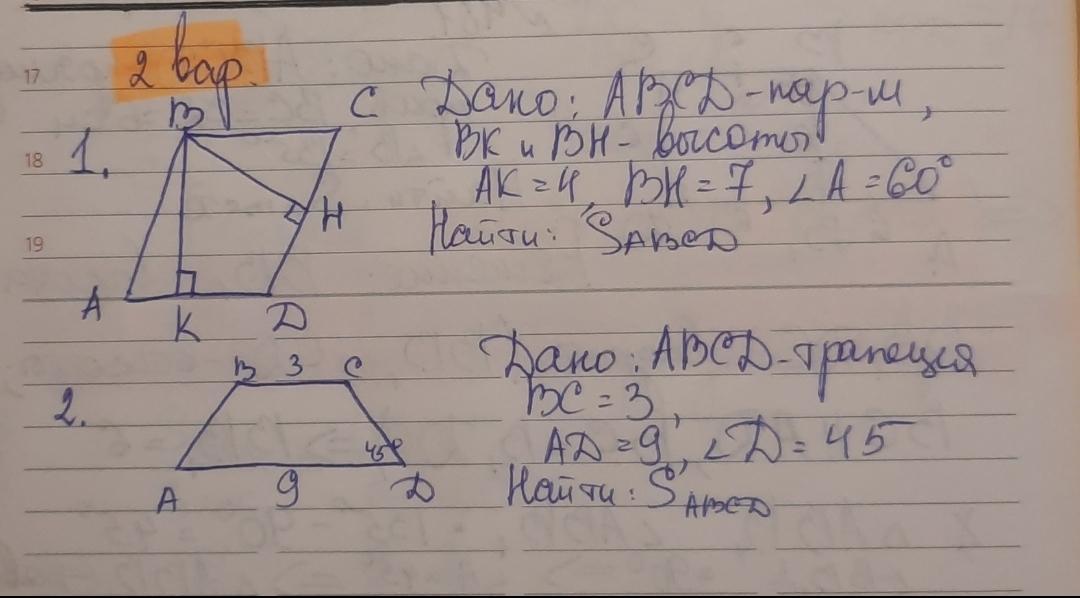 17
2 вар.
B C
Дано: ABCD-пар-м,
18
1.
BK и BH- высоты
AK = 4, BH = 7, ∠A = 60°
H
Найти: S_ABCD
19
A K D
Дано: ABCD-трапеция
B 3 C
2.
BC = 3,
45°
AD = 9, ∠D = 45°
A 9 D
Найти: S_ABCD